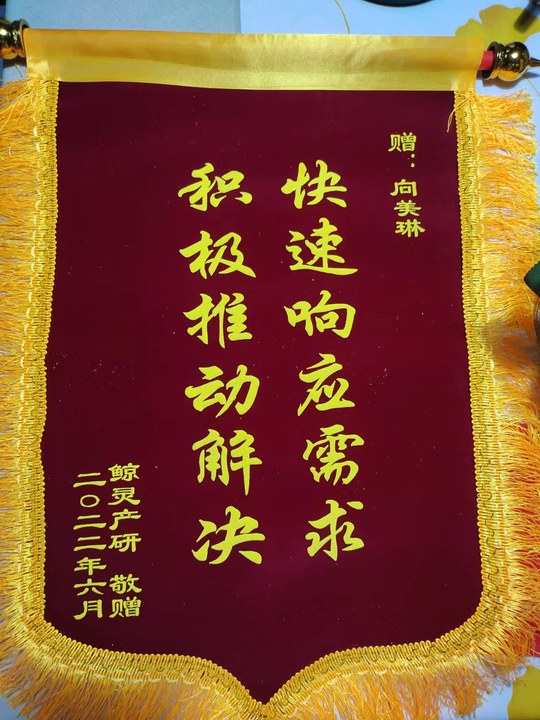 赠：向美琳
快速响应需求
积极推动解决
鲸灵产研 敬赠
二〇二二年六月